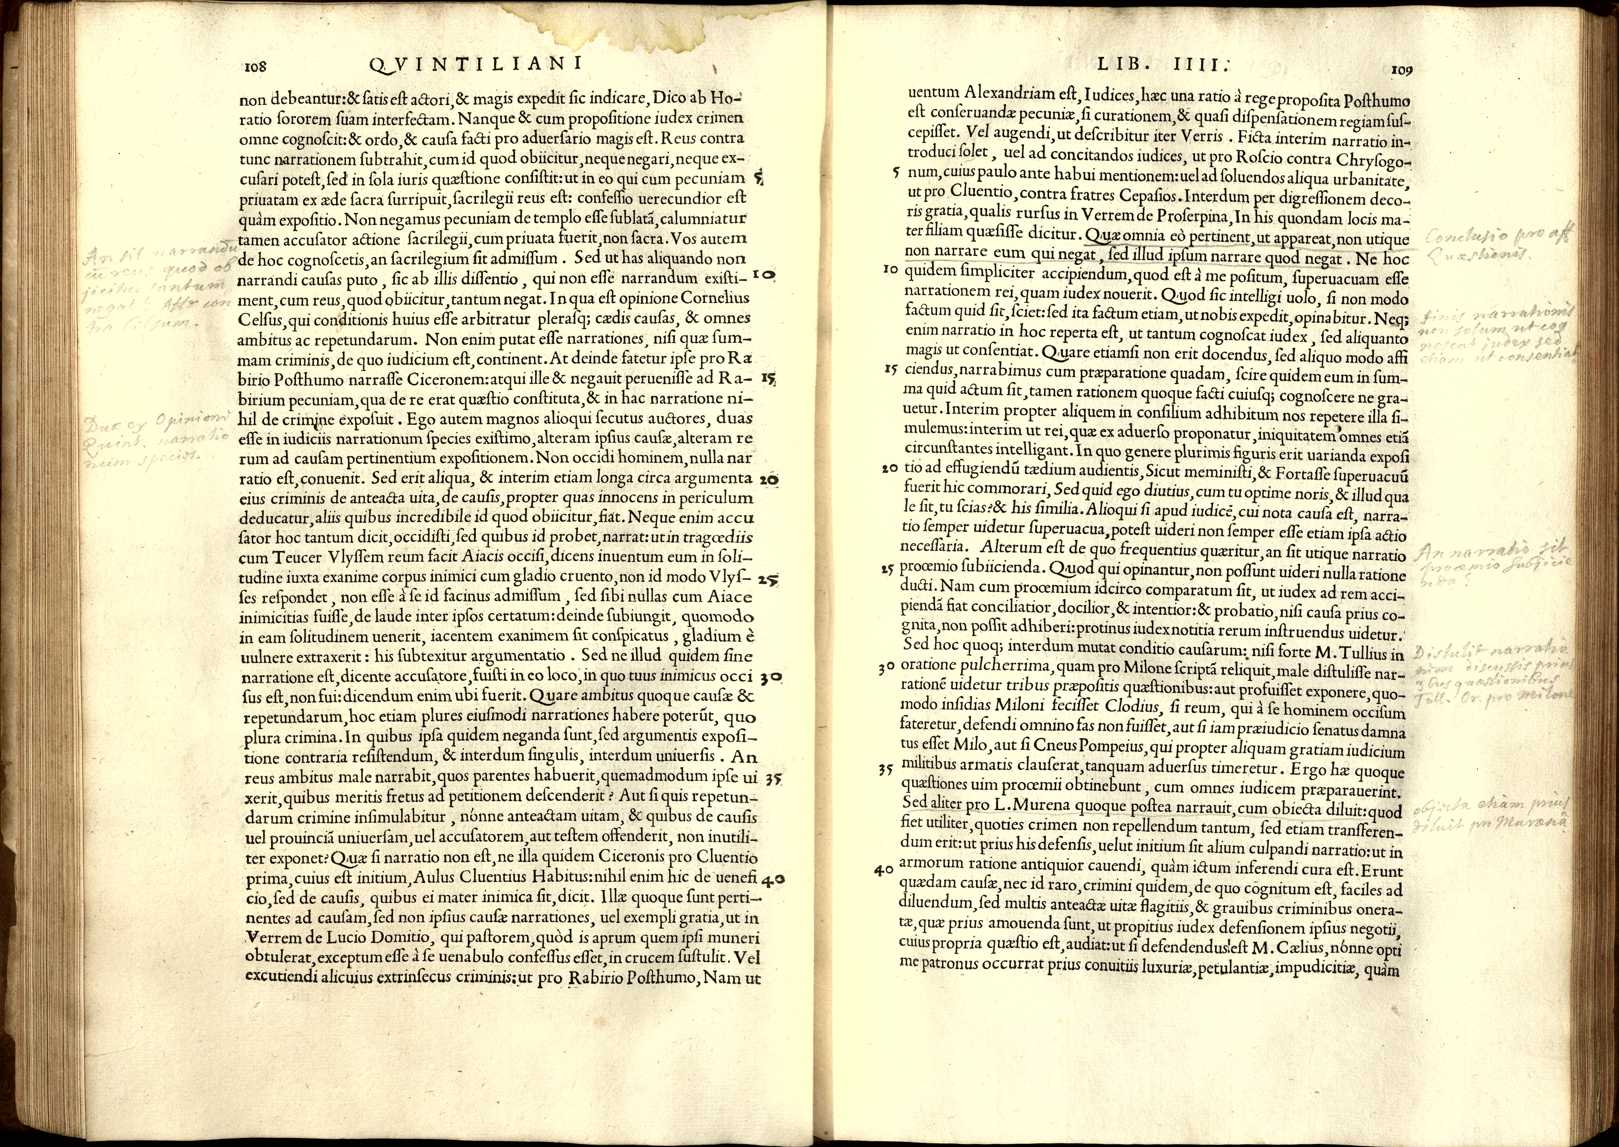 108 QVINTILIANI
non debeantur:& ſatis eſt actori,& magis expedit ſic indicare, Dico ab Ho-
ratio ſororem ſuam interfectam. Nanque & cum propoſitione iudex crimen
omne cognoſcit:& ordo,& cauſa facti pro aduerſario magis eſt. Reus contra
tunc narrationem ſubtrahit,cum id quod obiicitur,neque negari,neque ex-
cuſari poteſt,ſed in ſola iuris quæſtione conſiſtit:ut in eo qui cum pecuniam 5
priuatam ex æde ſacra ſurripuit,ſacrilegii reus eſt: confeſſio uerecundior eſt
quàm expoſitio. Non negamus pecuniam de templo eſſe ſublatā,calumniatur
tamen accuſator actione ſacrilegii,cum priuata fuerit,non ſacra. Vos autem
de hoc cognoſcetis,an ſacrilegium ſit admiſſum . Sed ut has aliquando non
narrandi cauſas puto , ſic ab illis diſſentio , qui non eſſe narrandum exiſti- 10
ment,cum reus,quod obiicitur,tantum negat. In qua eſt opinione Cornelius
Celſus,qui conditionis huius eſſe arbitratur pleraſq; cædis cauſas, & omnes
ambitus ac repetundarum. Non enim putat eſſe narrationes, niſi quæ ſum-
mam criminis,de quo iudicium eſt,continent. At deinde fatetur ipſe pro Ra
birio Poſthumo narraſſe Ciceronem:atqui ille & negauit perueniſſe ad Ra- 15
birium pecuniam,qua de re erat quæſtio conſtituta,& in hac narratione ni-
hil de crimine expoſuit . Ego autem magnos alioqui ſecutus auctores, duas
eſſe in iudiciis narrationum ſpecies exiſtimo,alteram ipſius cauſæ,alteram re
rum ad cauſam pertinentium expoſitionem. Non occidi hominem,nulla nar
ratio eſt,conuenit. Sed erit aliqua, & interim etiam longa circa argumenta 20
eius criminis de anteacta uita,de cauſis,propter quas innocens in periculum
deducatur,aliis quibus incredibile id quod obiicitur,fiat. Neque enim accu
ſator hoc tantum dicit,occidiſti,ſed quibus id probet,narrat:ut in tragœdiis
cum Teucer Vlyſſem reum facit Aiacis occiſi,dicens inuentum eum in ſoli-
tudine iuxta exanime corpus inimici cum gladio cruento,non id modo Vlyſ- 25
ſes reſpondet , non eſſe à ſe id facinus admiſſum , ſed ſibi nullas cum Aiace
inimicitias fuiſſe,de laude inter ipſos certatum:deinde ſubiungit, quomodo
in eam ſolitudinem uenerit, iacentem exanimem ſit conſpicatus , gladium è
uulnere extraxerit : his ſubtexitur argumentatio . Sed ne illud quidem ſine
narratione eſt,dicente accuſatore,fuiſti in eo loco,in quo tuus inimicus occi 30
ſus eſt,non fui:dicendum enim ubi fuerit. Quare ambitus quoque cauſæ &
repetundarum,hoc etiam plures eiuſmodi narrationes habere poterūt, quo
plura crimina. In quibus ipſa quidem neganda ſunt,ſed argumentis expoſi-
tione contraria reſiſtendum, & interdum ſingulis, interdum uniuerſis . An
reus ambitus male narrabit,quos parentes habuerit,quemadmodum ipſe ui 35
xerit,quibus meritis fretus ad petitionem deſcenderit? Aut ſi quis repetun-
darum crimine inſimulabitur , nónne anteactam uitam, & quibus de cauſis
uel prouinciā uniuerſam,uel accuſatorem,aut teſtem offenderit, non inutili-
ter exponet? Quæ ſi narratio non eſt,ne illa quidem Ciceronis pro Cluentio
prima,cuius eſt initium,Aulus Cluentius Habitus:nihil enim hic de uenefi 40
cio,ſed de cauſis, quibus ei mater inimica ſit,dicit. Illæ quoque ſunt perti-
nentes ad cauſam,ſed non ipſius cauſæ narrationes, uel exempli gratia,ut in
Verrem de Lucio Domitio, qui paſtorem,quòd is aprum quem ipſi muneri
obtulerat,exceptum eſſe à ſe uenabulo confeſſus eſſet,in crucem ſuſtulit. Vel
excutiendi alicuius extrinſecus criminis:ut pro Rabirio Poſthumo, Nam ut
An sit narrandū
cū reus quod ob
jicitur tantum
negat?
Duæ ex Opinione
Quint. narratio
num species.
LIB. IIII. 109
uentum Alexandriam eſt, Iudices,hæc una ratio à rege propoſita Poſthumo
eſt conſeruandæ pecuniæ,ſi curationem,& quaſi diſpenſationem regiam ſuſ-
cepiſſet. Vel augendi,ut deſcribitur iter Verris . Ficta interim narratio in-
troduci ſolet , uel ad concitandos iudices, ut pro Roſcio contra Chryſogo-
5 num,cuius paulo ante habui mentionem:uel ad ſoluendos aliqua urbanitate,
ut pro Cluentio,contra fratres Cepaſios. Interdum per digreſſionem deco-
ris gratia,qualis rurſus in Verrem de Proſerpina,In his quondam locis ma-
ter filiam quæſiſſe dicitur. Quæ omnia eò pertinent,ut appareat,non utique
non narrare eum qui negat, ſed illud ipſum narrare quod negat . Ne hoc
10 quidem ſimpliciter accipiendum,quod eſt à me poſitum, ſuperuacuam eſſe
narrationem rei,quam iudex nouerit. Quod ſic intelligi uolo, ſi non modo
factum quid ſit,ſciet:ſed ita factum etiam,ut nobis expedit,opinabitur. Neq;
enim narratio in hoc reperta eſt, ut tantum cognoſcat iudex , ſed aliquanto
magis ut conſentiat. Quare etiamſi non erit docendus, ſed aliquo modo affi
15 ciendus,narrabimus cum præparatione quadam, ſcire quidem eum in ſum-
ma quid actum ſit,tamen rationem quoque facti cuiuſq; cognoſcere ne gra-
uetur. Interim propter aliquem in conſilium adhibitum nos repetere illa ſi-
mulemus:interim ut rei,quæ ex aduerſo proponatur,iniquitatem omnes etiā
circunſtantes intelligant. In quo genere plurimis figuris erit uarianda expoſi
20 tio ad effugiendū tædium audientis, Sicut meminiſti,& Fortaſſe ſuperuacuū
fuerit hic commorari, Sed quid ego diutius,cum tu optime noris, & illud qua
le ſit,tu ſcias?& his ſimilia. Alioqui ſi apud iudicē,cui nota cauſa eſt, narra-
tio ſemper uidetur ſuperuacua,poteſt uideri non ſemper eſſe etiam ipſa actio
neceſſaria. Alterum eſt de quo frequentius quæritur,an ſit utique narratio
25 procemio ſubiicienda. Quod qui opinantur,non poſſunt uideri nulla ratione
ducti. Nam cum procemium idcirco comparatum ſit, ut iudex ad rem acci-
piendā fiat conciliatior,docilior,& intentior:& probatio,niſi cauſa prius co-
gnita,non poſſit adhiberi:protinus iudex notitia rerum inſtruendus uidetur.
Sed hoc quoq; interdum mutat conditio cauſarum: niſi forte M. Tullius in
30 oratione pulcherrima, quam pro Milone ſcriptā reliquit,male diſtuliſſe nar-
rationē uidetur tribus præpoſitis quæſtionibus:aut profuiſſet exponere,quo-
modo inſidias Miloni feciſſet Clodius, ſi reum, qui à ſe hominem occiſum
fateretur, defendi omnino fas non fuiſſet,aut ſi iam præiudicio ſenatus damna
tus eſſet Milo,aut ſi Cneus Pompeius,qui propter aliquam gratiam iudicium
35 militibus armatis clauſerat,tanquam aduerſus timeretur. Ergo hæ quoque
quæſtiones uim procemii obtinebunt , cum omnes iudicem præparauerint.
Sed aliter pro L. Murena quoque poſtea narrauit,cum obiecta diluit:quod
fiet utiliter,quoties crimen non repellendum tantum, ſed etiam transferen-
dum erit:ut prius his defenſis,uelut initium ſit alium culpandi narratio:ut in
40 armorum ratione antiquior cauendi, quàm ictum inferendi cura eſt. Erunt
quædam cauſæ,nec id raro,crimini quidem,de quo cognitum eſt, faciles ad
diluendum,ſed multis anteactæ uitæ flagitiis,& grauibus criminibus onera-
tæ,quæ prius amouenda ſunt,ut propitius iudex defenſionem ipſius negotii,
cuius propria quæſtio eſt,audiat:ut ſi defendendus eſt M. Cælius,nónne opti
me patronus occurrat prius conuitiis luxuriæ,petulantiæ,impudicitiæ, quàm
Conclusio pro aff.
Quæstionis.
finis narrationis
non solum ut cog
noscat judex sed
etiam ut consentiat
An narratio sit
proœmio subjicie
nda?
Distulit narratio
nem discussis prius
tribus quæstionibus
Tull. Or. pro Milone
objecta etiam prius
diluit pro Murenâ